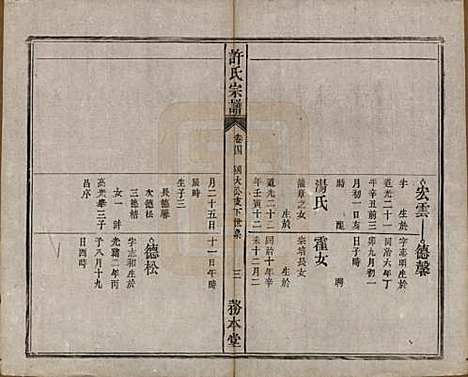 宏雲
德馨
字　生於
字志明生於
道光二十一
同治六年丁
年辛丑又前三
卯九月初一
月初一日亥
日子時
時
配
聘
湯氏
霍女
龍章之女
宗培長女
生於
生於
道光二十二
同治十年辛
年壬寅十二
未十二月二
許氏宗譜
卷四
國大公支下世系
三
務本堂
月二十五日
十一日午時
辰時
生子三
長德馨
德松
次德松
字志和生於
三德禧
光緒二年丙
女一許
子八月十九
高光華三子
日酉時
昌序